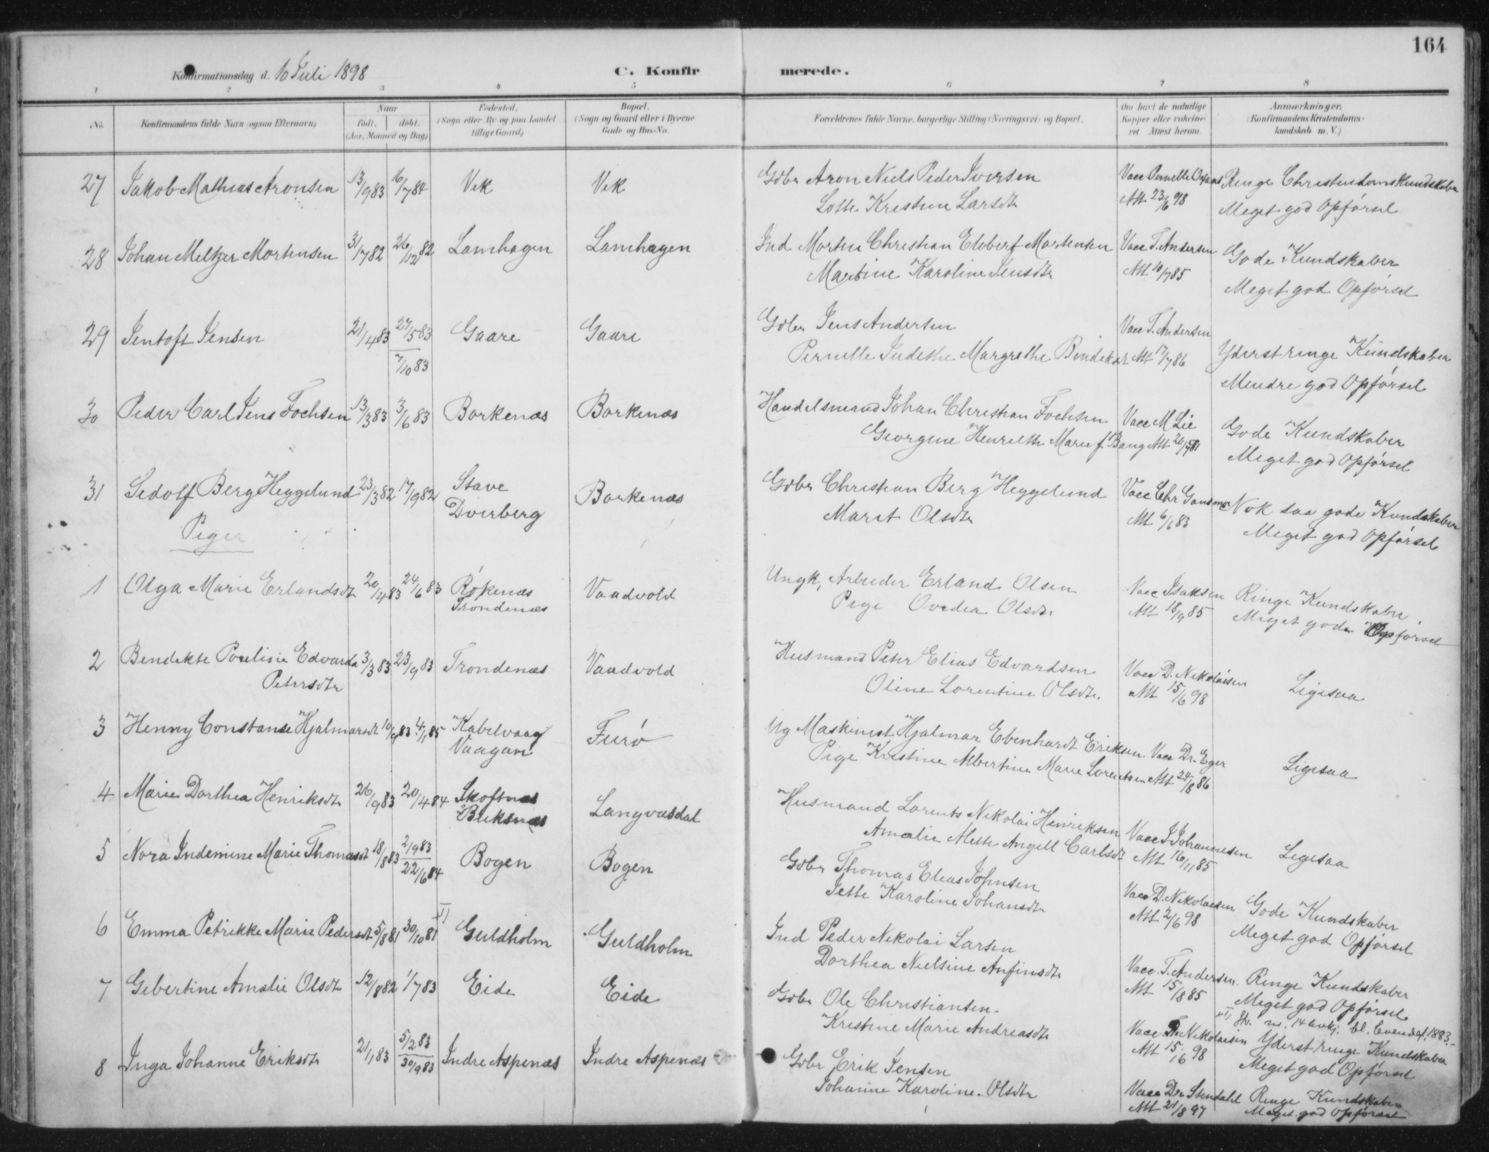 164
Konfirmationsdag d. 10 Juli 1898
C. Konfirmerede.
1 2 3 4 5 6 7 8
No. Konfirmandens fulde Navn (ogsaa Efternavn) Naar født. døbt. (Aar, Maaned og Dag) Fødested. (Sogn eller By og paa Landet tillige Gaard) Bopæl. (Sogn og Gaard eller i Byerne Gade og Hus-No. Forældrenes fulde Navne, borgerlige Stilling (Næringsvei) og Bopæl. Om havt de naturlige Kopper eller vaccineret. Attest herom. Anmærkninger. (Konfirmandens Kristendomskundskab m. V.)
27 Jakob Mathias Aronsen 13/9 83 16/7 84 Vik Vik Gdbr Aron Niels Peder Iversen Vacc
Lotte Kristine Larsdtr Att. 23/6 98 Ringe Christendomskundskaber
Meget god Opførsel
28 Johan Meltzer Mortensen 31/7 82 26/12 82 Lamhagen Lamhagen Ind Martin Christian Elebert Mortensen Vacc T. Andersen Gode Kundskaber
Martine Karoline Jensdtr Att 16/7 85 Meget god Opførsel
29 Jentoft Jensen 21/4 83 27/5 83 7/10 83 Gaare Gaare Gdbr Jens Andersen Vacc T. Andersen
Pernille Judithe Margrethe Att 17/7 86 Yderst ringe Kundskaber
Mindre god Opførsel
30 Peder Carl Jens Fochsen 13/3 83 3/6 83 Borkenæs Borkenæs Handelsmand Johan Christian Fochsen Vacc M Lie Gode Kundskaber
Georgine Henriette Marie f. Bang Att Meget god Opførsel
31 Sedolf Berg Heggelund 23/3 82 17/9 82 Stave Borkenæs Gdbr Christian Berg Heggelund Vacc Chr Nok saa gode Kundskaber
Dverberg Marit Olsdtr Att 6/6 83 Meget god Opførsel
Piger
1 Olga Marie Erlandsdtr 20/4 83 24/6 83 Røkenæs Vaadvold Ungk, Arbeider Erland Olsen Vacc Isaksen Ringe Kundskaber
Trondenæs Pige Ovedia Olsdtr Att 18/9 85 Meget gode Opførsel
2 Bendikte Pouline Edvarda 3/3 83 23/9 83 Trondenæs Vaadvold Husmand Peter Elias Edvardsen Vacc D. Nikolaisen
Petersdtr Oline Lorentine Olsdtr. Att 15/6 98 Ligesaa
3 Henny Constanse Hjalmarsdt 10/9 83 4/1 85 Kabelvaag Furø Ug Maskinist Hjalmar Ebenhardt Eriksen Vacc Dr. Eger Ligesaa
Vaagan Pige Kristine Albertine Marie Lorentsen Att 24/8 86
4 Marie Dorthea Henriksdtr 26/9 83 20/4 84 Skoftnæs Langvasdal Husmand Lorents Nikolai Henriksen Vacc J Johannesen Ligesaa
Buksnæs Amalie Mette Angell Carlsdt Att 16/11 85
5 Nora Indemine Marie Thomasdt 18/8 83 2/9 83 22/6 84 Bogen Bogen Gdbr Thomas Elias Johnsen Vacc D. Nikolaisen Gode Kundskaber
Jette Karoline Johansdtr Att 2/6 98 Meget god Opførsel
6 Emma Petrikke Marie Pedersdt 5/8 81 30/10 81 Guldholm Guldholm Ind Peder Nikolai Larsen Vacc T. Andersen. Ringe Kundskaber
Dorthea Nielsine Anfinsdtr Att 15/8 85 Meget god Opførsel
7 Gibertine Amalie Olsdtr 12/8 82 1/7 83 Eide Eide Gdbr Ole Christiansen. Vacc D. Nikolaisen Yderst ringe Kundskaber
Kristine Marie Andreasdtr Att 15/6 98 Meget god Opførsel
8 Inga Johanne Eriksdtr 21/1 83 5/2 83 30/9 83 Indre Aspenæs Indre Aspenæs Gdbr Erik Jensen Vacc Dr Stendahl Ringe Kundskaber
Johanne Karoline Olsdtr Att 21/8 97 Meget god Opførsel